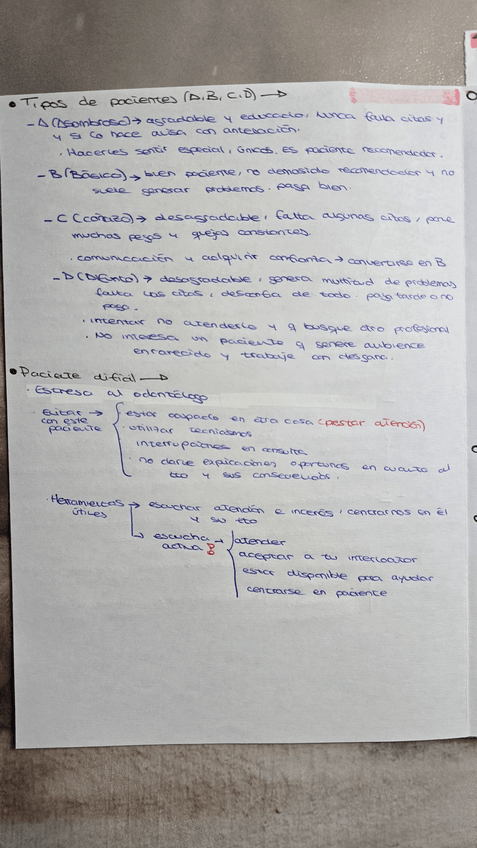 • Tipos de pacientes (A, B, C, D) →
- A (Asombroso) → agradable y educado, nunca falla citas y
y si lo hace avisa con antelación.
· Hacerles sentir especial, únicos. Es paciente recomendador.
- B (Básico) → buen paciente, no demasido recomendador y no
suele generar problemas. paga bien.
- C (coñazo) → desagradable, falta algunas citas, pone
muchas pegas y quejas constantes.
· comunicación y adquirir confianza → convertirse en B
- D (Difunto) → desagradable, genera multitud de problemas
falta las citas, desconfía de todo. paga tarde o no
paga.
· intentar no atenderlo y q busque otro profesional
· No interesa un paciente q genere ambiente
enrarecido y trabaje con desgana.
• Paciente difícil →
· Estresa al odontólogo
· Evitar → estar ocupado en otra cosa (prestar atención)
con este · utilizar tecnicismos
paciente interrupciones en consulta
· no darle explicaciones oportunas en cuanto al
tto y sus consecuencias.
· Herramientas → escuchar atención e interés, centrarnos en él
útiles y su tto
→ escucha → atender
activa aceptar a tu interlocutor
estar disponible para ayudar
centrarse en paciente